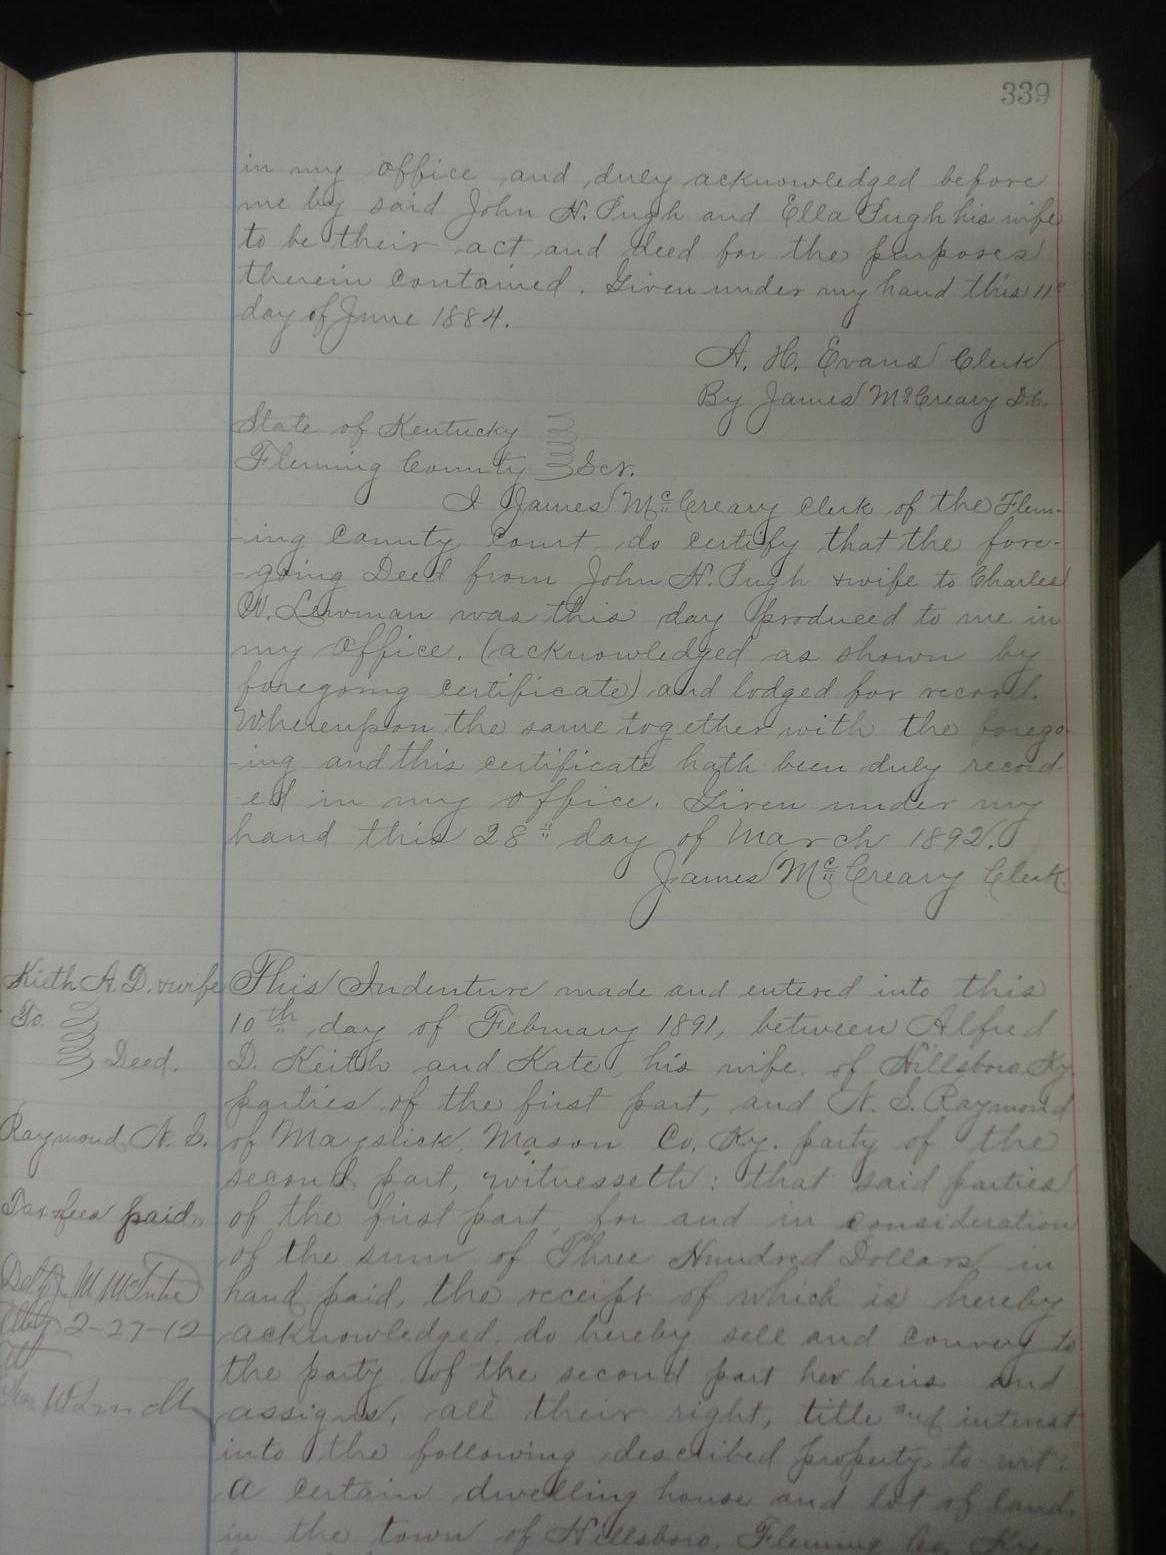 339
in my office and duly acknowledged before
me by said John H. Pugh and Ella Pugh his wife
to be their act and deed for the purposes
therein contained. Given under my hand this 11"
day of June 1884.
A. H. Evans Clerk
By James McCreary D.C.
State of Kentucky
Fleming County } Sct.
I James McCreary Clerk of the Flem-
-ing County Court, do certify that the fore-
-going Deed from John H. Pugh & wife to Charles
W. Lowman was this day produced to me in
my Office, (acknowledged as shown by
foregoing certificate) and lodged for record.
Whereupon the same together with the forego-
-ing and this certificate hath been duly record-
-ed in my office. Given under my
hand this 28" day of March 1892.
James McCreary Clerk.
Kieth A. D. & wife
To
} Deed.
Raymond, N. S.
Tax & fees paid.
2-27-12
This Indenture made and entered into this
10th day of February 1891, between Alfred
D. Keith and Kate, his wife, of Hillsboro Ky.
parties of the first part, and N. S. Raymond
of Mayslick, Mason Co, Ky. party of the
second part, witnesseth: that said parties
of the first part, for and in consideration
of the sum of Three Hundred Dollars in
hand paid, the receipt of which is hereby
acknowledged, do hereby sell and convey to
the party of the second part her heirs and
assigns, all their right, title and interest
into the following described property, to wit:
A certain dwelling house and lot of land,
in the town of Hillsboro, Fleming Co, Ky.